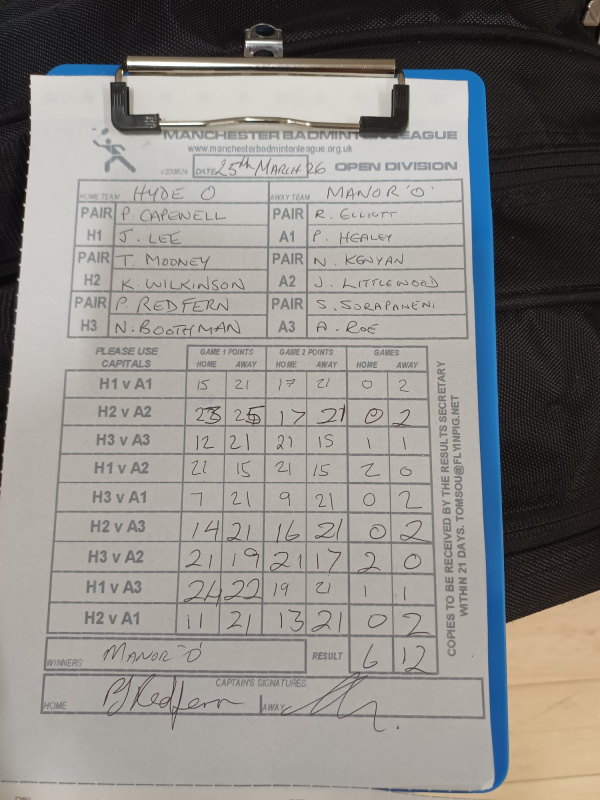 MANCHESTER BADMINTON LEAGUE
www.manchesterbadmintonleague.org.uk
v230624 DATE 25th MARCH 26 OPEN DIVISION
HOME TEAM HYDE O AWAY TEAM MANOR 'O'
PAIR P. CAPEWELL PAIR R. ELLIOTT
H1 J. LEE A1 P. HEALEY
PAIR T. MOONEY PAIR N. KENYAN
H2 K. WILKINSON A2 J. LITTLEWOOD
PAIR P. REDFERN PAIR S. SORAPANENI
H3 N. BOOTHMAN A3 A. ROE
PLEASE USE CAPITALS GAME 1 POINTS GAME 2 POINTS GAMES
HOME AWAY HOME AWAY HOME AWAY
H1 v A1 15 21 17 21 0 2
H2 v A2 23 25 17 21 0 2
H3 v A3 12 21 21 15 1 1
H1 v A2 21 15 21 15 2 0
H3 v A1 7 21 9 21 0 2
H2 v A3 14 21 16 21 0 2
H3 v A2 21 19 21 17 2 0
H1 v A3 24 22 19 21 1 1
H2 v A1 11 21 13 21 0 2
WINNERS MANOR 'O' RESULT 6 12
CAPTAIN'S SIGNATURES
HOME PJ Redfern AWAY
COPIES TO BE RECEIVED BY THE RESULTS SECRETARY
WITHIN 21 DAYS. TOMSOU@FLYINPIG.NET